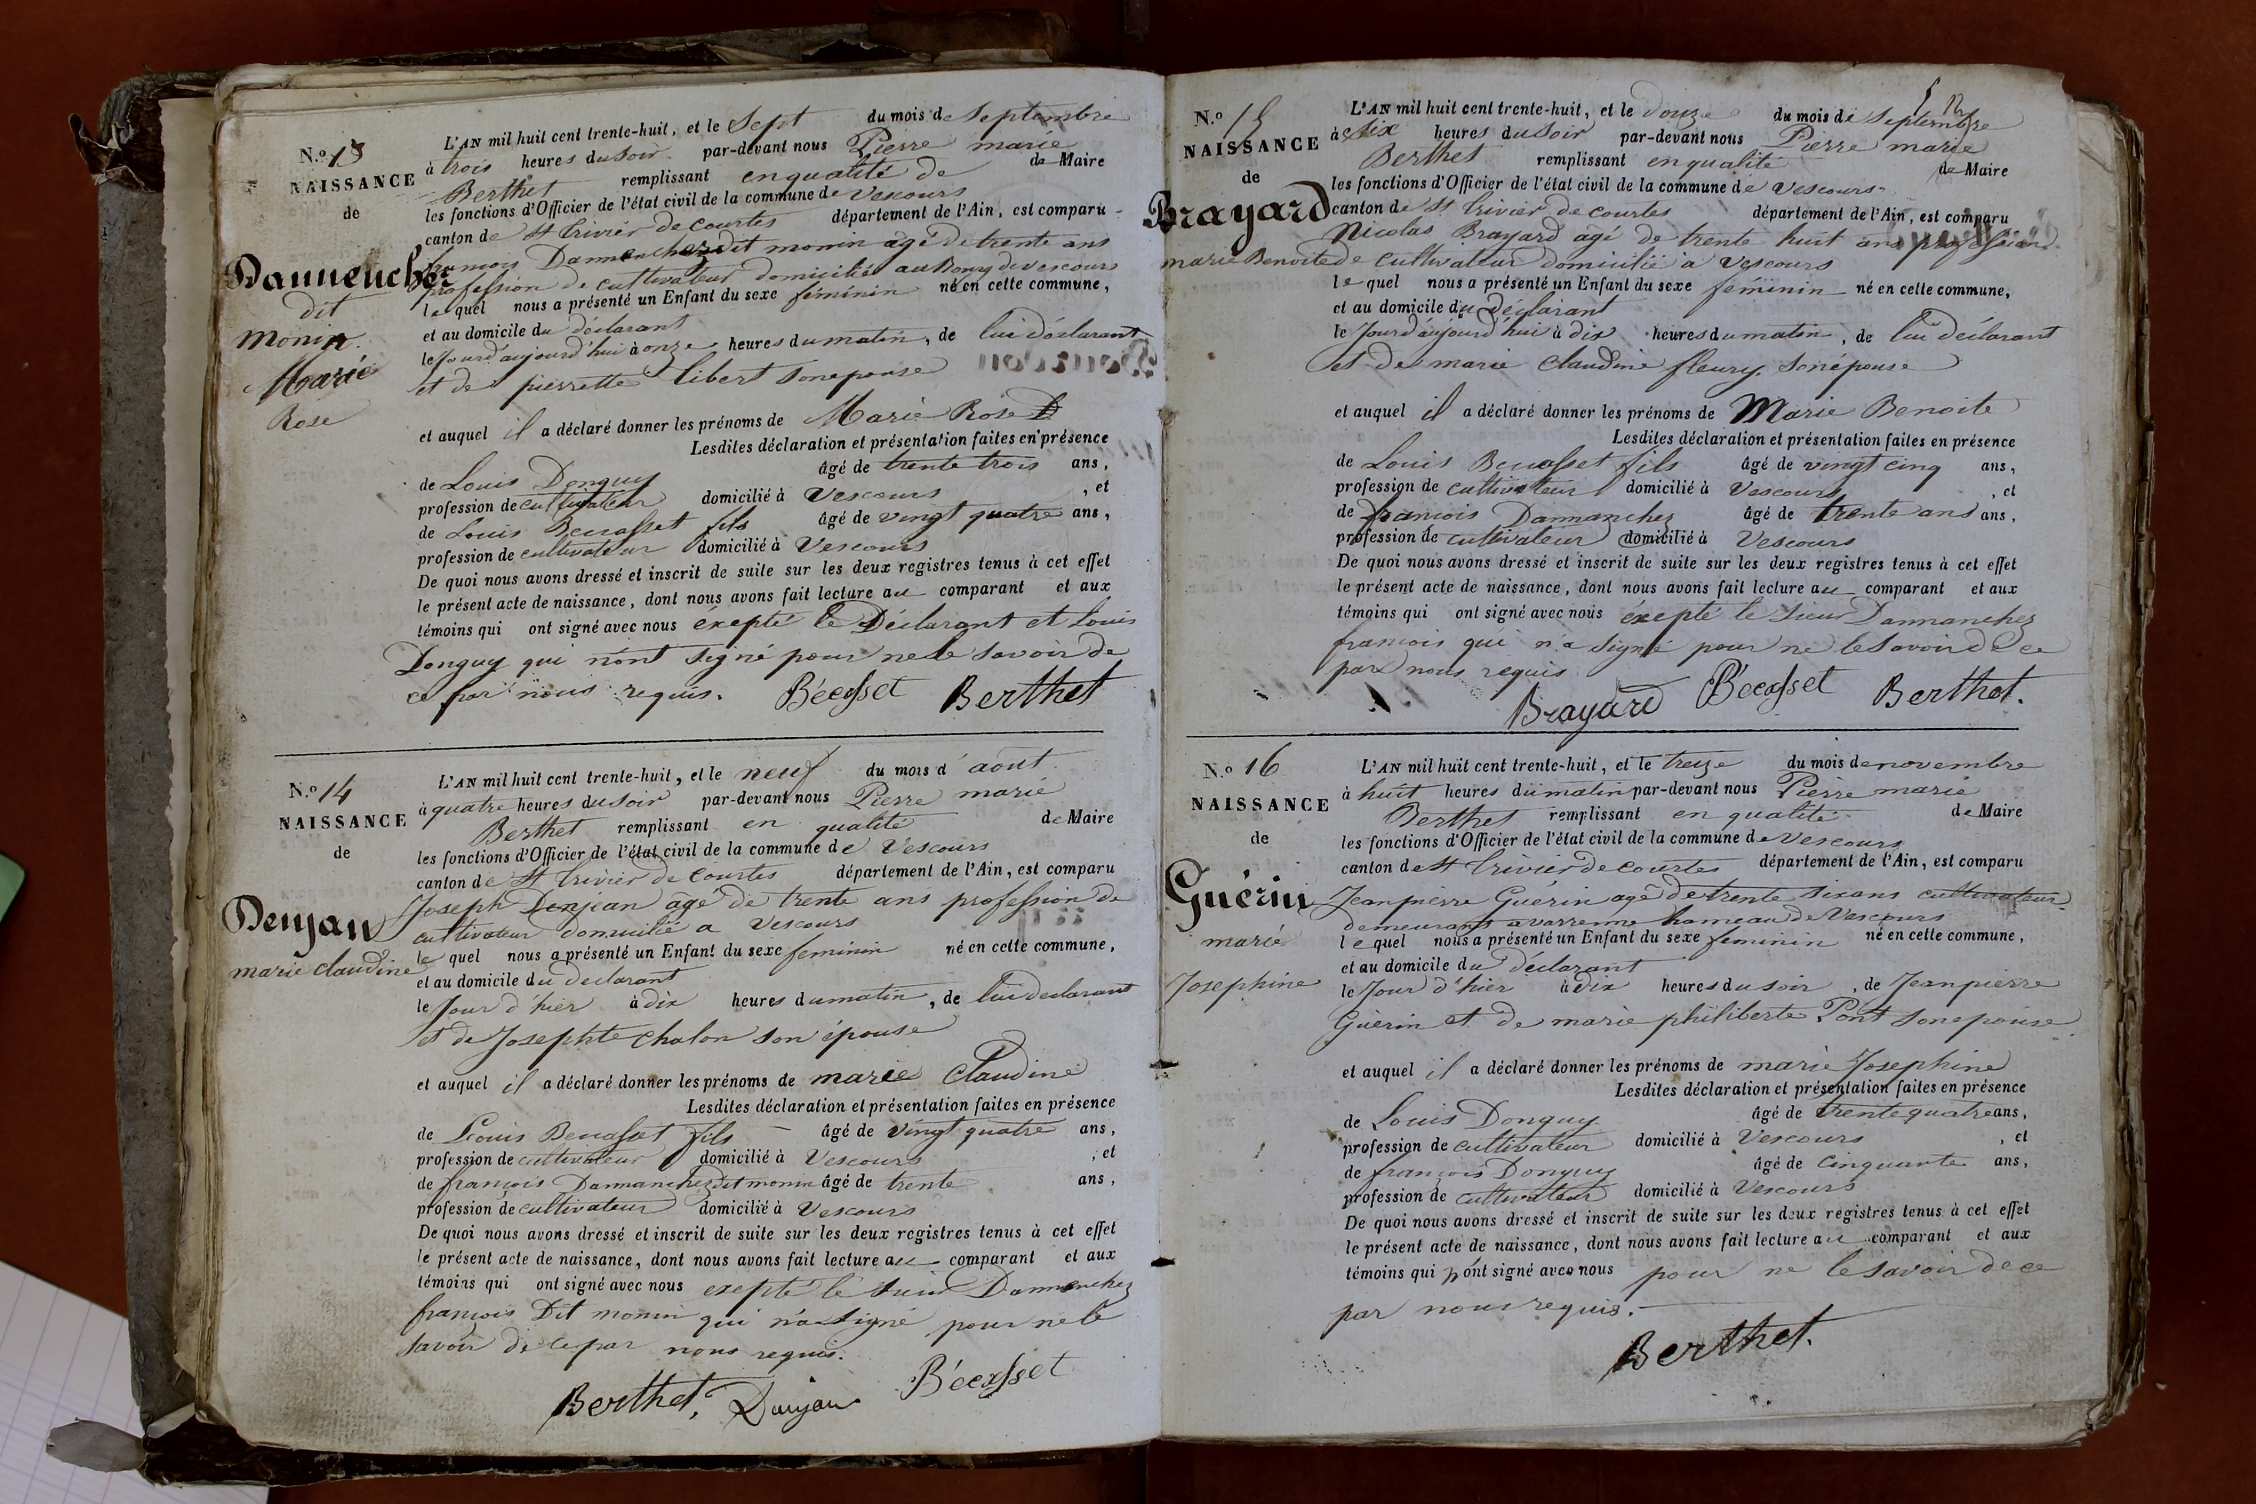 N.º 13
NAISSANCE
de
Dannencher
dit
monin
Marie
Rose
L'AN mil huit cent trente-huit, et le Sept du mois de Septembre
à trois heures du soir par-devant nous Pierre marie
Berthet remplissant en qualité de de Maire
les fonctions d'Officier de l'état civil de la commune de Vescours
canton de St trivier de courtes département de l'Ain, est comparu
françois Dannanchez dit monin agé de trente ans
profession de cultivateur domicilié au Bourg de vescours
le quel nous a présenté un Enfant du sexe féminin né en cette commune,
et au domicile du déclarant
le Jourd'aujourd'hui à onze heures du matin, de lui déclarant
et de pierrette libert son epouse
et auquel il a déclaré donner les prénoms de Marie Rose
Lesdites déclaration et présentation faites en présence
de Louis Donguy âgé de trente trois ans,
profession de cultivateur domicilié à Vescours, et
de Louis Becasset fils âgé de vingt quatre ans,
profession de cultivateur domicilié à Vescours
De quoi nous avons dressé et inscrit de suite sur les deux registres tenus à cet effet
le présent acte de naissance, dont nous avons fait lecture au comparant et aux
témoins qui ont signé avec nous éxepté le Déclarant et Louis
Donguy qui n'ont signé pour ne le savoir de
ce par nous requis. Bécasset Berthet
N.º 14
NAISSANCE
de
Denjan
marie claudine
L'AN mil huit cent trente-huit, et le neuf du mois d'aout
à quatre heures du soir par-devant nous Pierre marie
Berthet remplissant en qualité de Maire
les fonctions d'Officier de l'état civil de la commune de Vescours
canton de St trivier de Courtes département de l'Ain, est comparu
Joseph Denjean agé de trente ans profession de
cultivateur domicilié a Vescours
le quel nous a présenté un Enfant du sexe feminin né en cette commune,
et au domicile du declarant
le Jour d'hier à dix heures du matin, de lui declarant
et de Josephte chalon son épouse
et auquel il a déclaré donner les prénoms de marie Claudine
Lesdites déclaration et présentation faites en présence
de Louis Becasset fils âgé de vingt quatre ans,
profession de cultivateur domicilié à Vescours, et
de françois Dannanchez dit monin âgé de trente ans,
profession de cultivateur domicilié à Vescours
De quoi nous avons dressé et inscrit de suite sur les deux registres tenus à cet effet
le présent acte de naissance, dont nous avons fait lecture au comparant et aux
témoins qui ont signé avec nous exepté le sieur Dannenchez
françois Dit monin qui n'a signé pour ne le
savoir de ce par nous requis.
Berthet, Danjan Bécasset
N.º 15
NAISSANCE
de
Brayard
marie Benoite
L'AN mil huit cent trente-huit, et le douze du mois de Septembre
à six heures du soir par-devant nous Pierre marie
Berthet remplissant en qualité de Maire
les fonctions d'Officier de l'état civil de la commune de Vescours
canton de St trivier de courtes département de l'Ain, est comparu
Nicolas Brayard agé de trente huit ans profession
de cultivateur domicilié à Vescours
le quel nous a présenté un Enfant du sexe feminin né en cette commune,
et au domicile du déclarant
le Jourd'aujourd'hui à dix heures du matin, de lui déclarant
et de marie claudine fleury son épouse
et auquel il a déclaré donner les prénoms de Marie Benoite
Lesdites déclaration et présentation faites en présence
de Louis Becasset fils âgé de vingt cinq ans,
profession de cultivateur domicilié à Vescours, et
de françois Dannanchez âgé de trente ans ans,
profession de cultivateur domicilié à Vescours
De quoi nous avons dressé et inscrit de suite sur les deux registres tenus à cet effet
le présent acte de naissance, dont nous avons fait lecture au comparant et aux
témoins qui ont signé avec nous éxepté le sieur Dannanchez
francois qui n'a signé pour ne le savoir de ce
par nous requis
Brayard Bécasset Berthet.
N.º 16
NAISSANCE
de
Guérin
marie
Josephine
L'AN mil huit cent trente-huit, et le treize du mois de novembre
à huit heures du matin par-devant nous Pierre marie
Berthet remplissant en qualité de Maire
les fonctions d'Officier de l'état civil de la commune de Vescours
canton de St trivier de courtes département de l'Ain, est comparu
Jeanpierre Guérin agé de trente six ans cultivateur
demeurant a varenne hameau de Vescours
le quel nous a présenté un Enfant du sexe feminin né en cette commune,
et au domicile du déclarant
le Jour d'hier à dix heures du soir, de Jeanpierre
Guérin et de marie philiberte Pont son epouse
et auquel il a déclaré donner les prénoms de marie Josephine
Lesdites déclaration et présentation faites en présence
de Louis Donguy âgé de trente quatre ans,
profession de cultivateur domicilié à Vescours, et
de françois Donguy âgé de Cinquante ans,
profession de cultivateur domicilié à Vescours
De quoi nous avons dressé et inscrit de suite sur les deux registres tenus à cet effet
le présent acte de naissance, dont nous avons fait lecture au comparant et aux
témoins qui n'ont signé avec nous pour ne le savoir de ce
par nous requis.
Berthet.